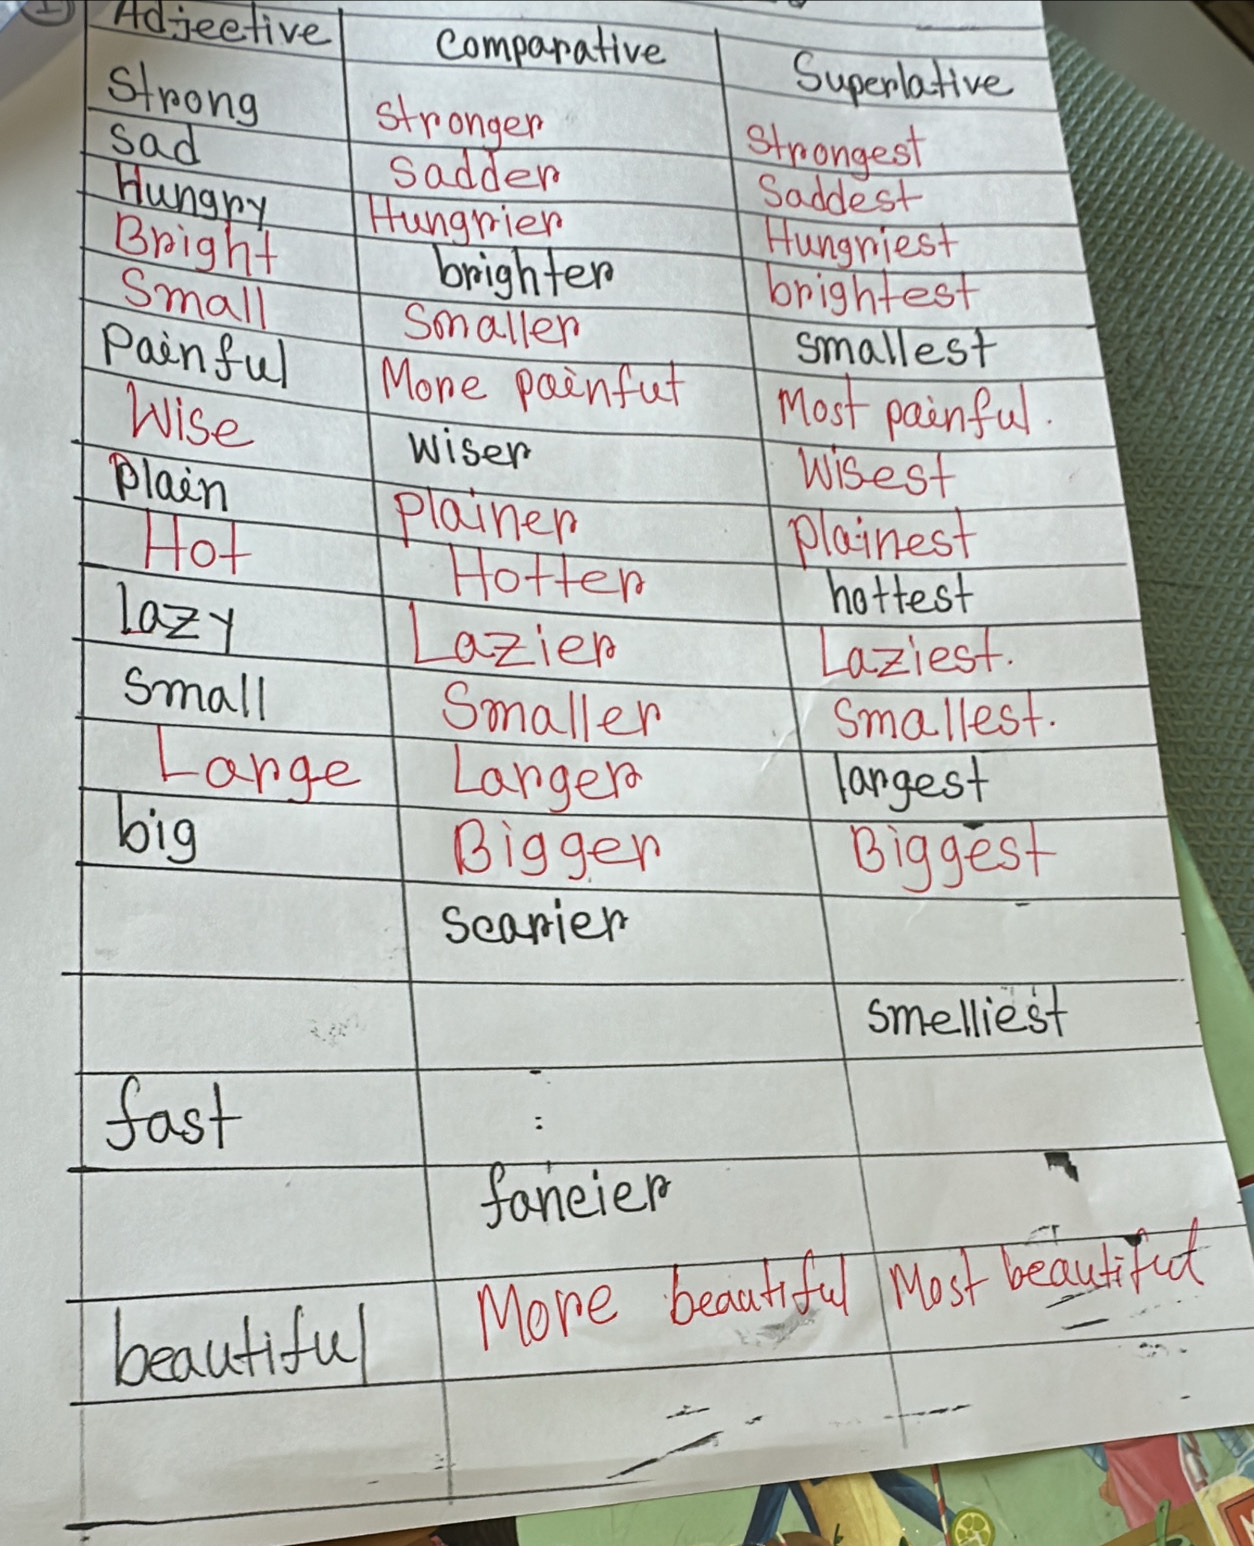 Adjective Comparative Superlative
Strong Stronger Strongest
Sad Sadder Saddest
Hungry Hungrier Hungriest
Bright brighter brightest
Small Smaller smallest
Painful More painful Most painful.
Wise wiser Wisest
Plain Plainer Plainest
Hot Hotter hottest
lazy Lazier Laziest.
small Smaller Smallest.
Large Larger largest
big Bigger Biggest
scarier
smelliest
fast
fancier
beautiful More beautiful Most beautiful